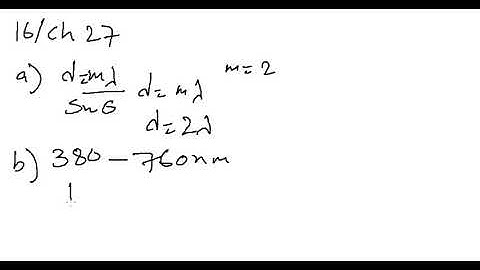 16/Ch 27
a) d=mλ/Sinθ d=mλ m=2
d=2λ
b) 380-760nm